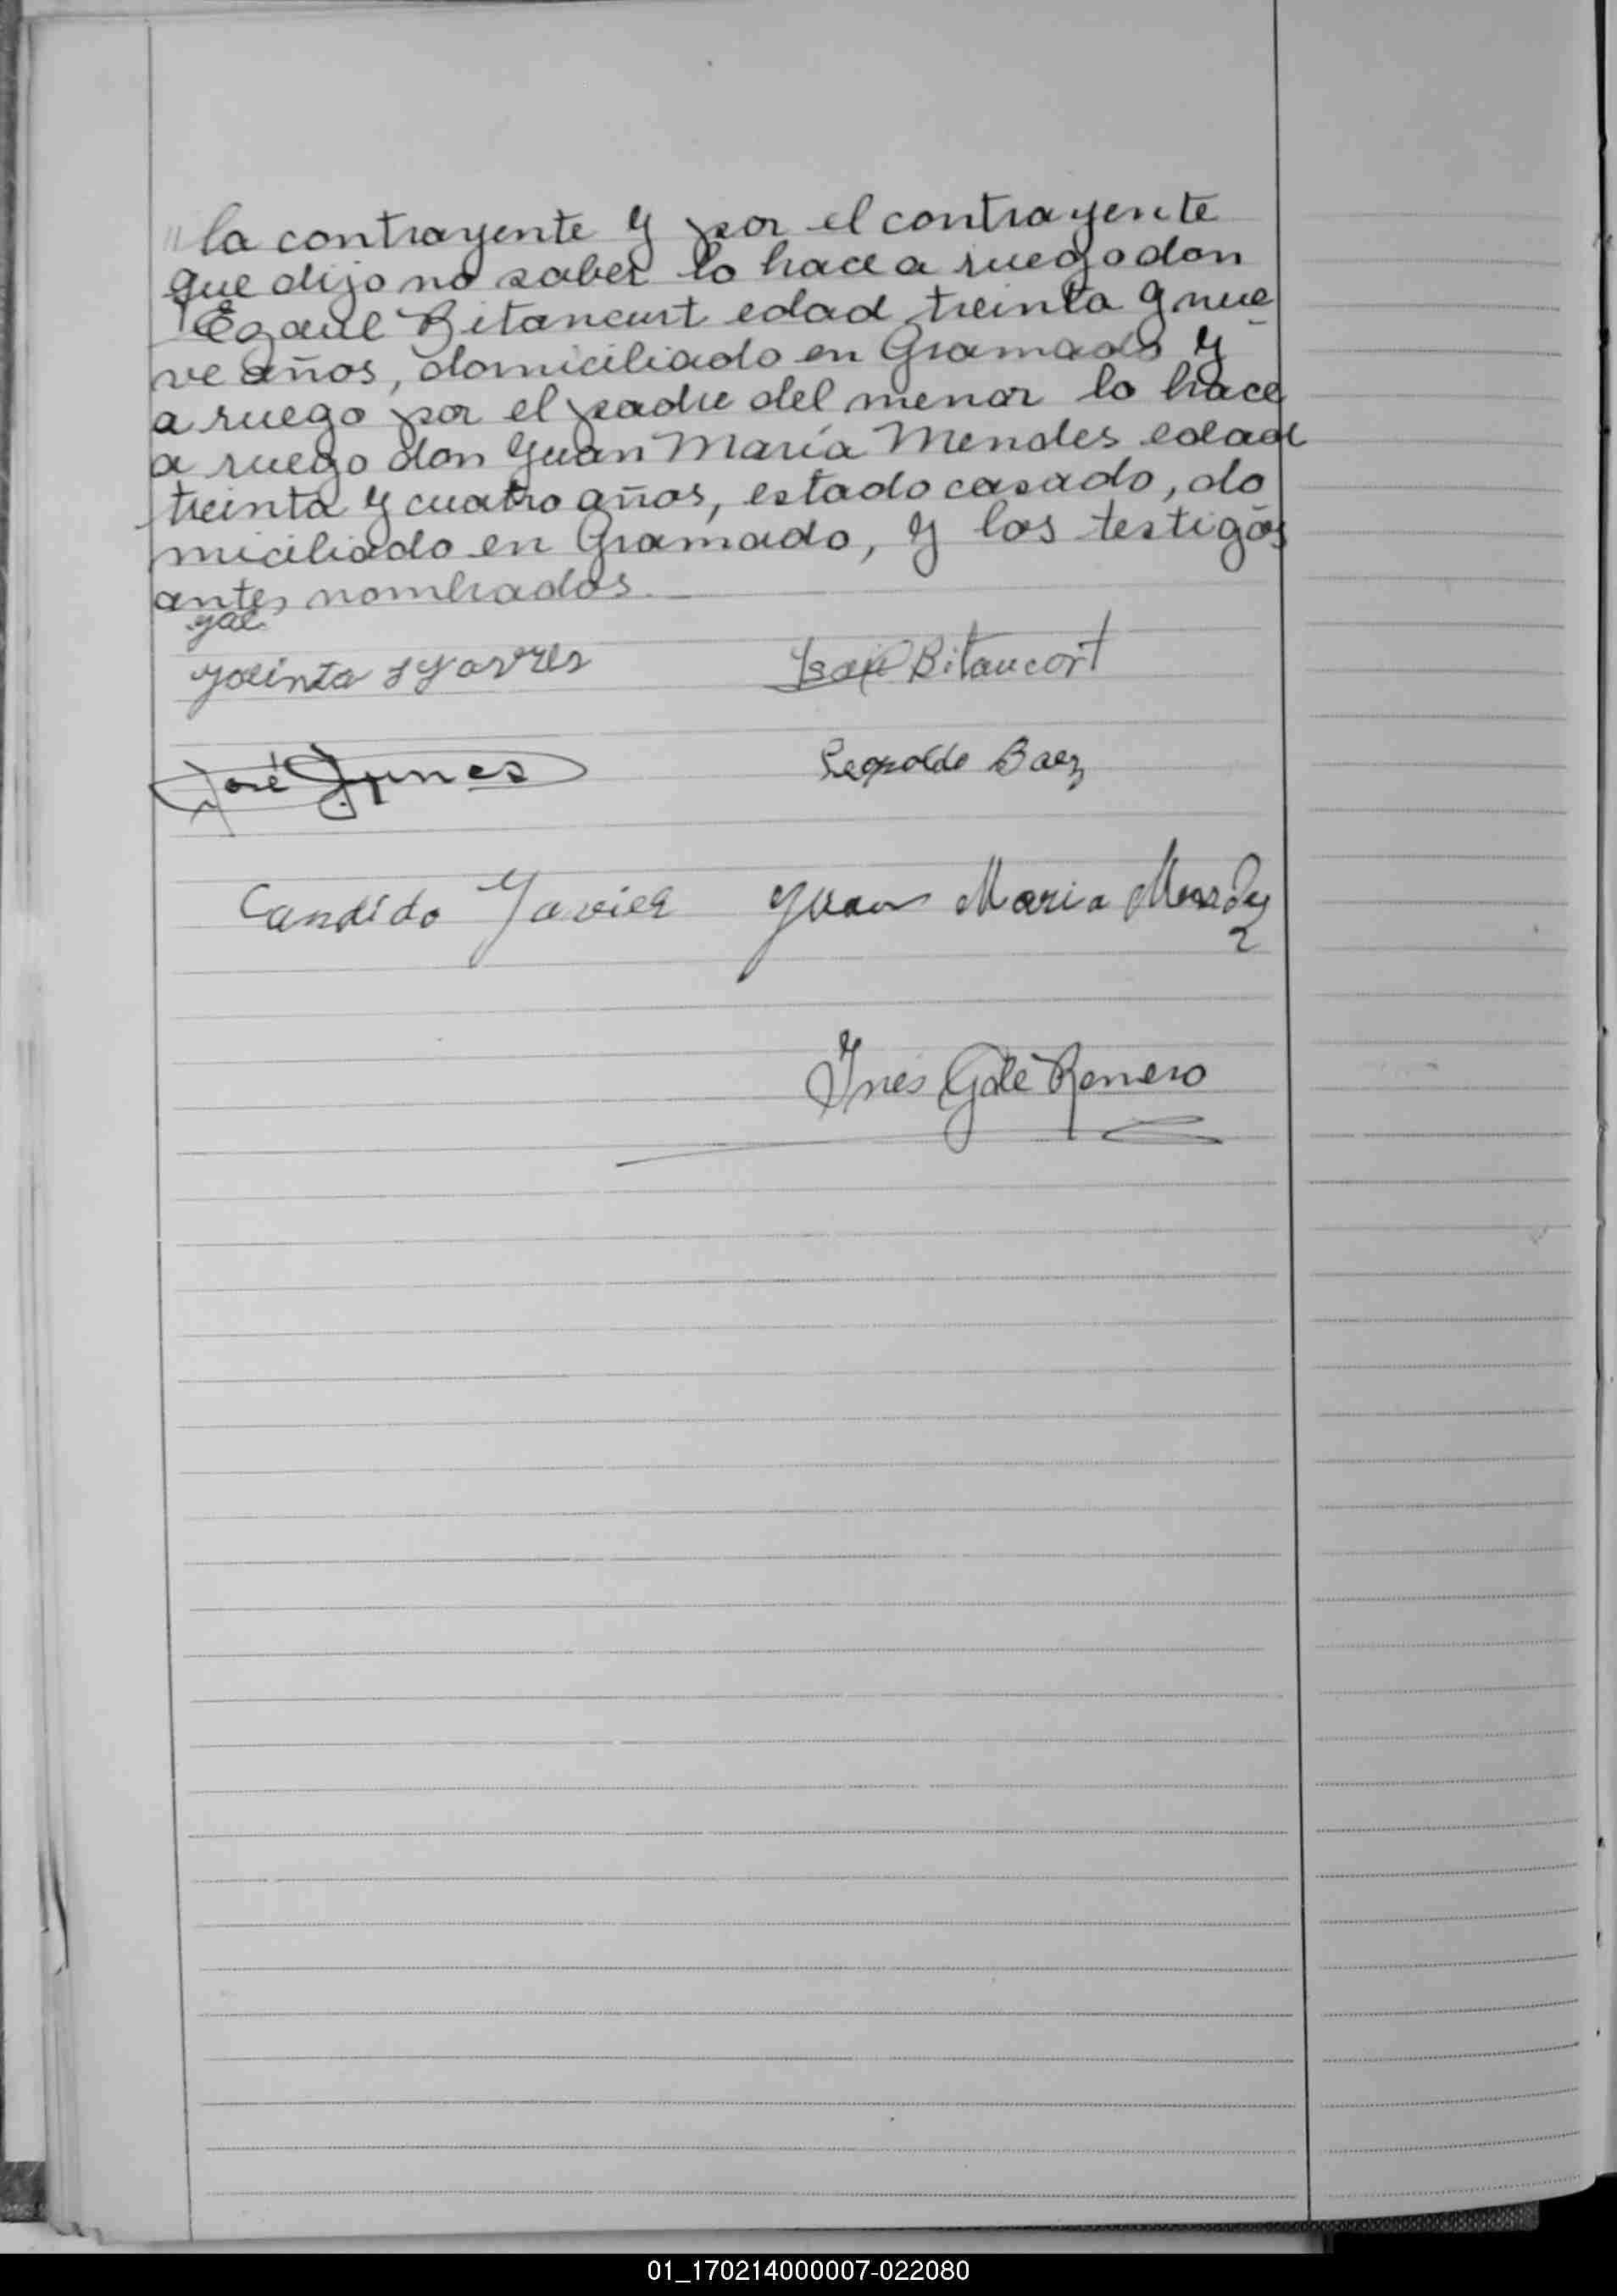 " la contrayente y por el contrayente
que dijo no saber lo hace a ruego don
Ezaul Bitancurt edad treinta y nue
ve años, domiciliado en Gramado y
a ruego por el padre del menor lo hace
a ruego don Juan María Mendes edad
treinta y cuatro años, estado casado, do
miciliado en Gramado, y los testigos
antes nombrados.
Jacinta Bitancort
José Leopoldo Baez
Candido Javier Juan Maria
Ines Galé Romero
01_170214000007-022080